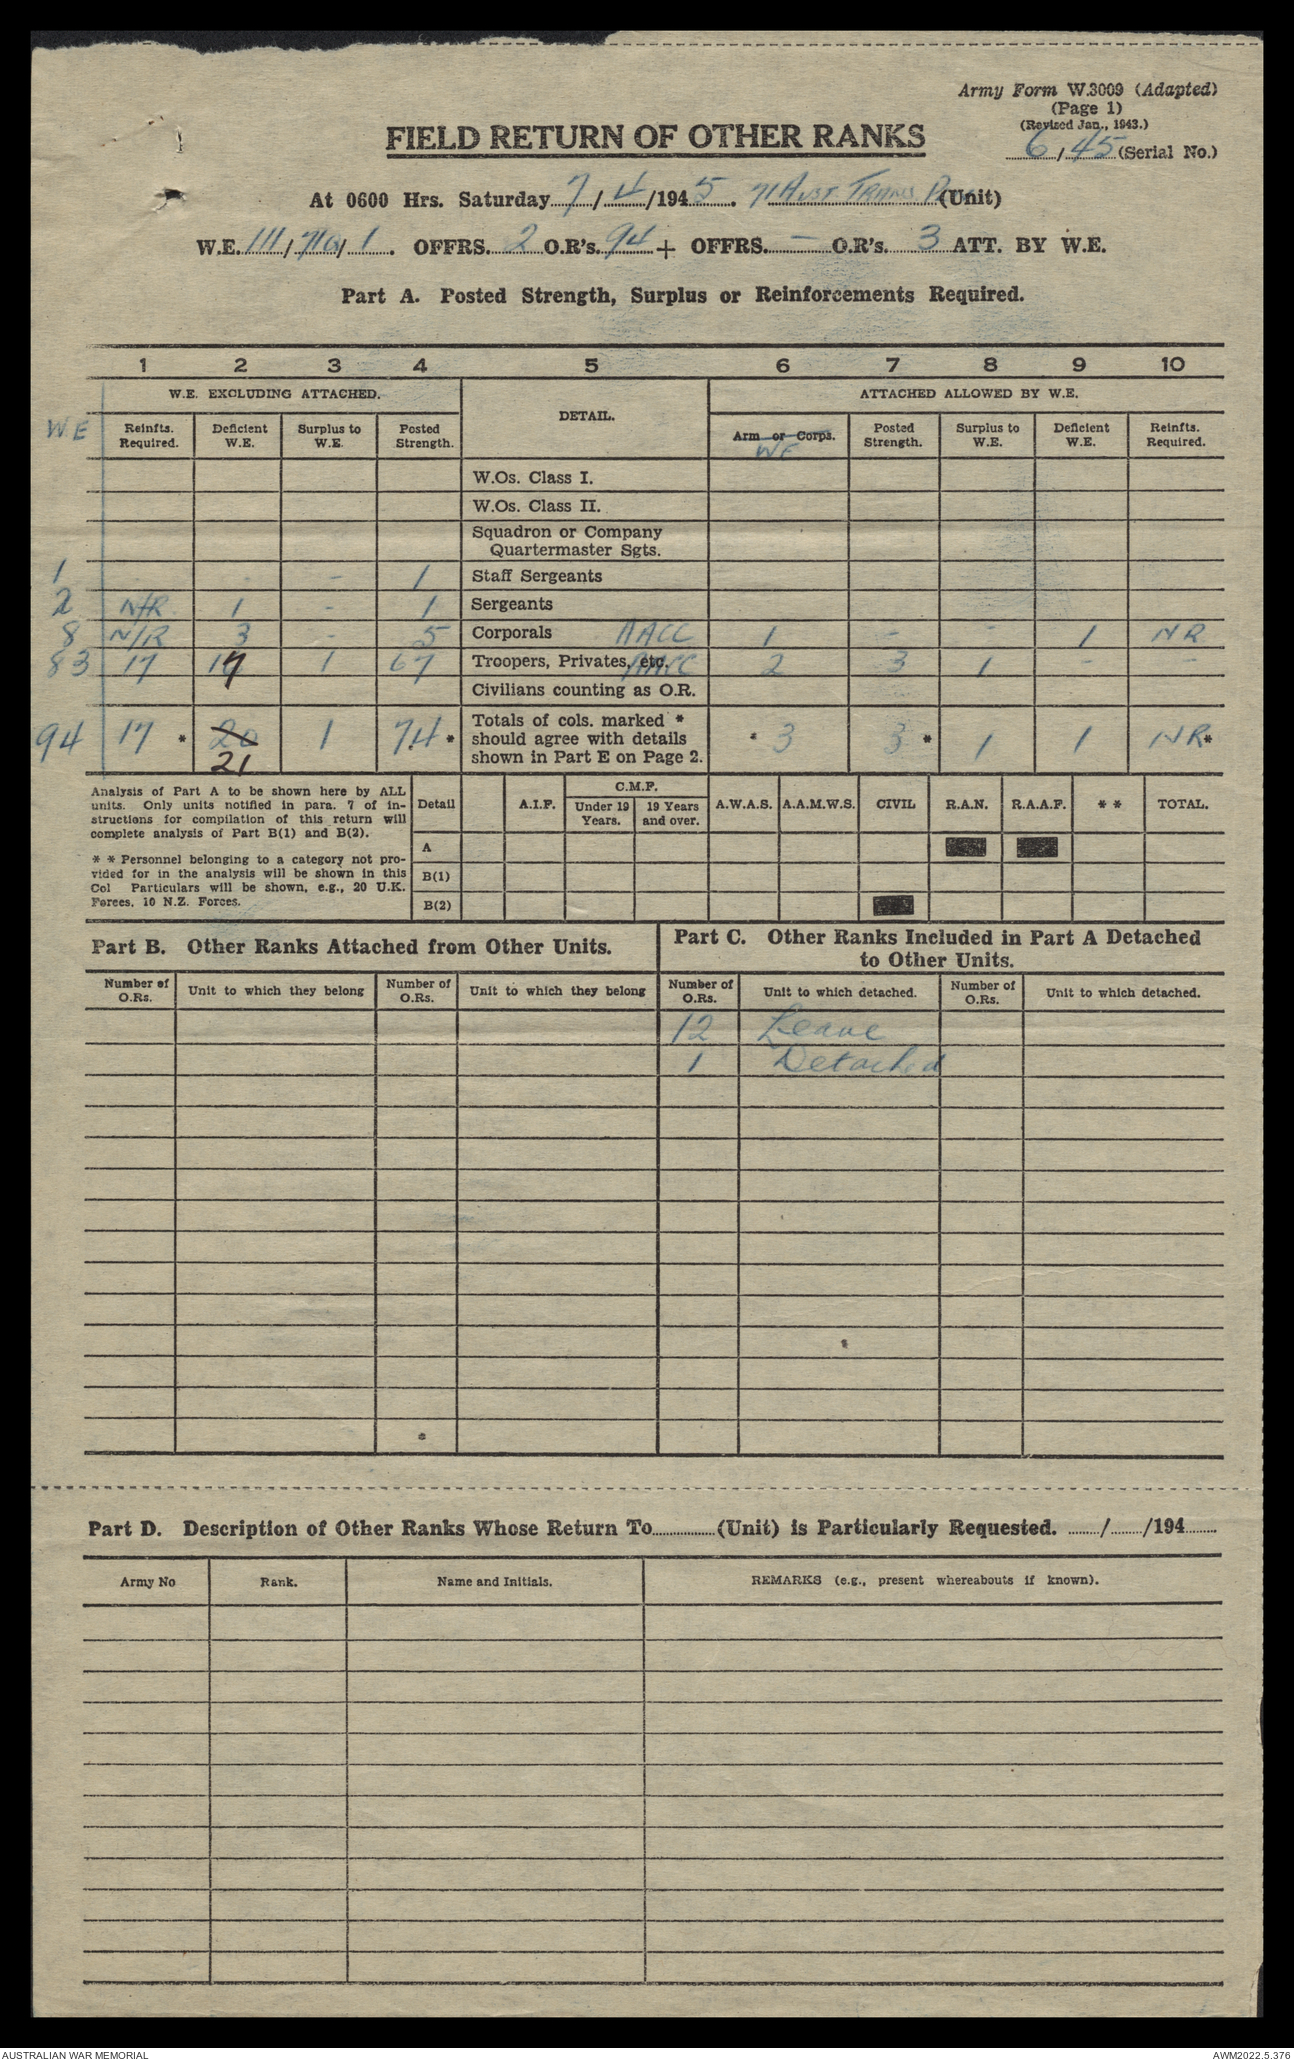 Army Form W.3009 (Adapted)
(Page 1)
(Revised Jan., 1943.)
6/45 (Serial No.)
FIELD RETURN OF OTHER RANKS
At 0600 Hrs. Saturday 7/4/1945. 71 Aust Trans (Unit)
W.E. III/71G/1. OFFRS. 2 O.R's. 94 + OFFRS. – O.R's. 3 ATT. BY W.E.
Part A. Posted Strength, Surplus or Reinforcements Required.
1 2 3 4 5 6 7 8 9 10
W.E. EXCLUDING ATTACHED. DETAIL. ATTACHED ALLOWED BY W.E.
WE Reinfts. Required. Deficient W.E. Surplus to W.E. Posted Strength. Arm or Corps. WE Posted Strength. Surplus to W.E. Deficient W.E. Reinfts. Required.
W.Os. Class I.
W.Os. Class II.
Squadron or Company
Quartermaster Sgts.
1 - - – 1 Staff Sergeants
2 N/R 1 - 1 Sergeants
8 N/R 3 - 5 Corporals AACC 1 - - 1 NR
83 17 17 1 67 Troopers, Privates, etc. AACC 2 3 1 - -
Civilians counting as O.R.
Totals of cols. marked *
94 17 * 20 1 74 * should agree with details * 3 3 * 1 1 NR *
21 shown in Part E on Page 2.
Analysis of Part A to be shown here by ALL
units. Only units notified in para. 7 of in-
structions for compilation of this return will
complete analysis of Part B(1) and B(2).
* * Personnel belonging to a category not pro-
vided for in the analysis will be shown in this
Col Particulars will be shown, e.g., 20 U.K.
Forces, 10 N.Z. Forces.
C.M.F.
Detail A.I.F. Under 19 Years. 19 Years and over. A.W.A.S. A.A.M.W.S. CIVIL R.A.N. R.A.A.F. * * TOTAL.
A
B(1)
B(2)
Part B. Other Ranks Attached from Other Units.
Part C. Other Ranks Included in Part A Detached
to Other Units.
Number of O.Rs. Unit to which they belong Number of O.Rs. Unit to which they belong Number of O.Rs. Unit to which detached. Number of O.Rs. Unit to which detached.
12 Leave
1 Detached
Part D. Description of Other Ranks Whose Return To (Unit) is Particularly Requested. / /194
Army No Rank. Name and Initials. REMARKS (e.g., present whereabouts if known).
AUSTRALIAN WAR MEMORIAL AWM2022.5.376